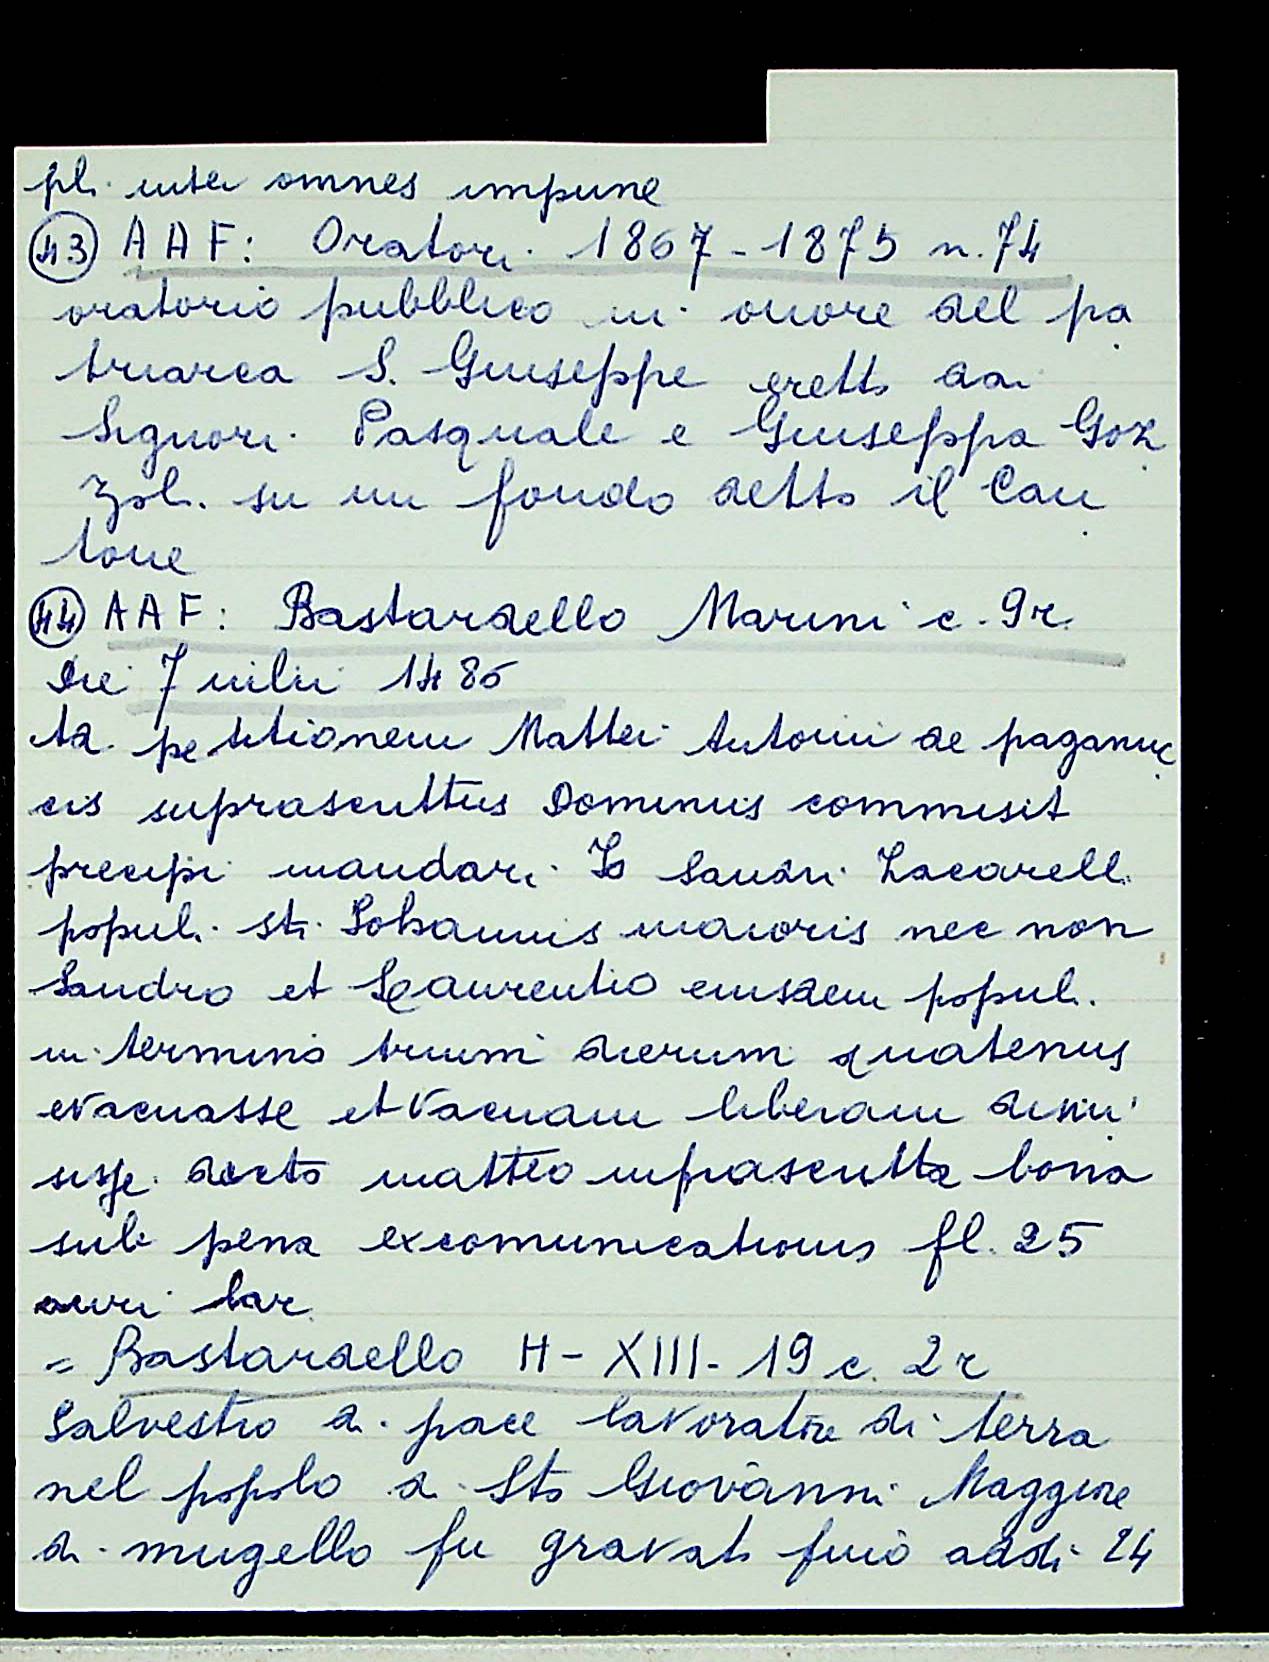 pli inter omnes impune
43 AAF: Oratori 1867-1875 n. 74
oratorio pubblico in onore del pa
triarca S. Giuseppe eretto dai
Signori Pasquale e Giuseppa Goz
zoli su un fondo detto il Can
tone
44 AAF: Bastardello Marini c. 9r.
Die 7 iulii 1486
Ad petitionem Mattei Antonii de paganuc
cis suprascrittus Dominus commisit
precipi mandari Io Sandri Zacarelli
populi sti Iohannis maioris nec non
Sandro et Laurentio eiusdem populi
in termino trium dierum quatenus
evacuasse et vacuam liberam dimi
sisse dicto matteo infrascritta bona
sub pena excomunicationis fl. 25
auri lar.
= Bastardello H-XIII-19 c. 2r
Salvestro di pace lavoratore di terra
nel popolo di Sto Giovanni Maggiore
di mugello fu gravato fino addi 24